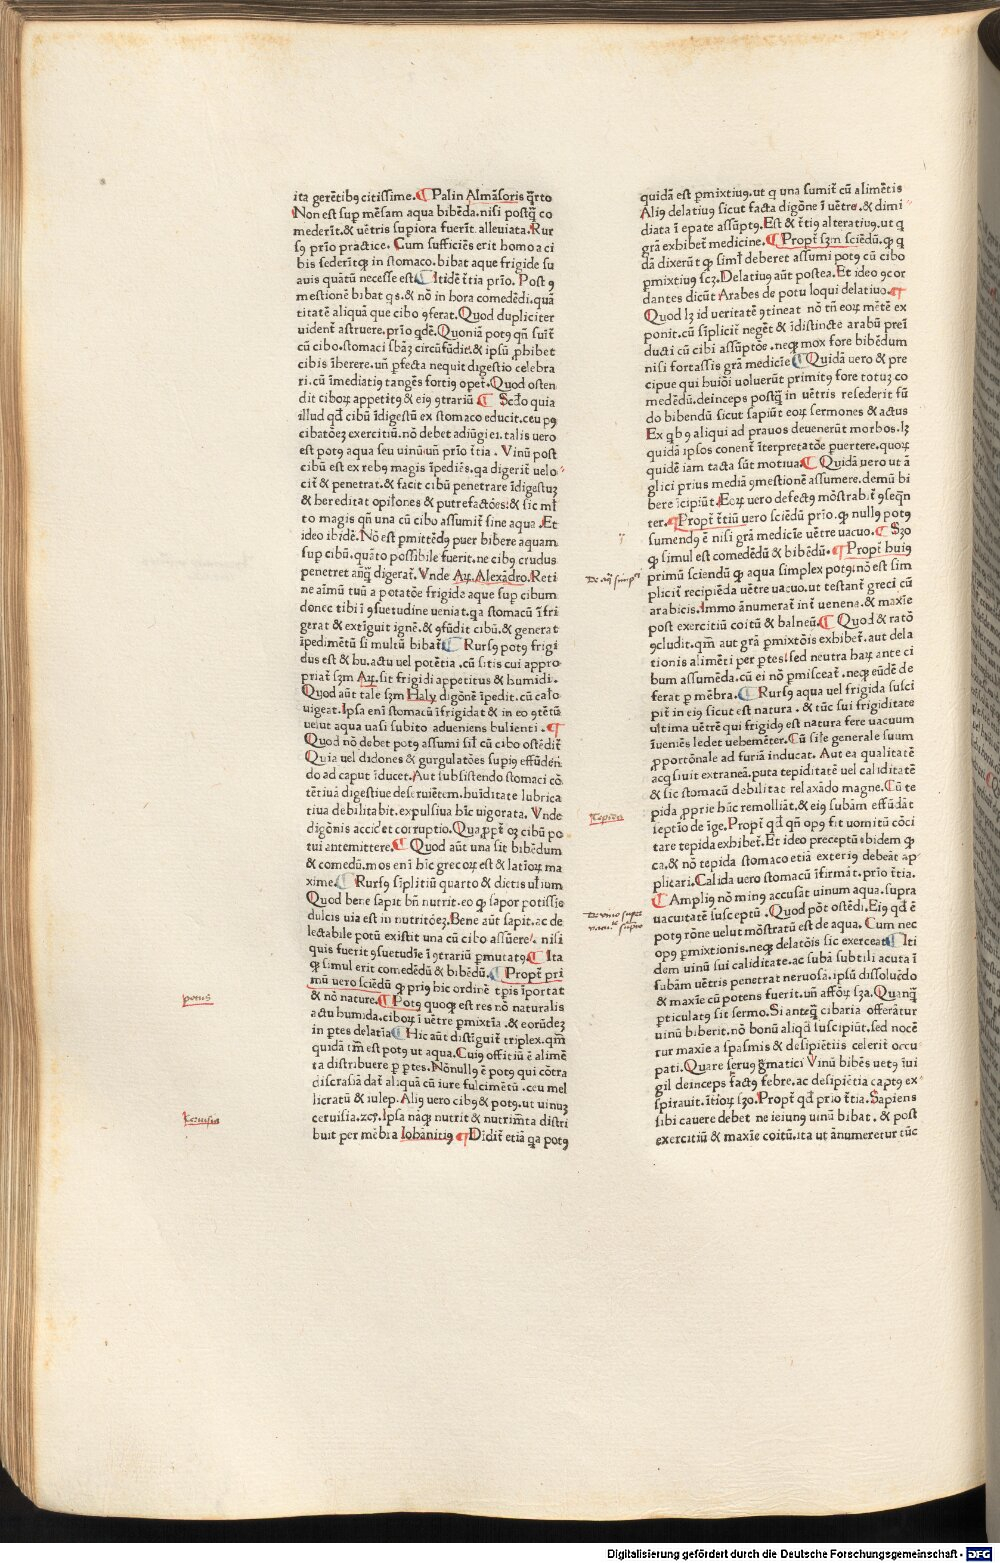 ita gerēt̄ibꝯ citissime. ¶ Palin Almāsoris q̄rto
Non est sup mēsam aqua bibēda. nisi postq̄ co
mederīt. & uētris supiora fuerīt alleuiata. Rur
sꝯ prīo practice. Cum sufficiēs erit homo a ci
bis sederitqꝫ in stomaco. bibat aque frigide su
auis quātū necesse est. ¶ Itidē t̄tia prīo. Post ꝯ
mestionē bibat qs. & nō in hora comedēdi. quā
titatē aliquā que cibo ꝯferat. Quod dupliciter
uident̄ astruere. prīo qdē. Quoniā potꝯ qn̄ suīt̄
cū cibo. stomaci sbāꝫ circūfūdit̄. & ipsū ꝓhibet
cibis īherere. un̄ pfecta nequit digestio celebra
ri. cū īmediatiꝯ tangēs fortiꝯ opet̄. Quod osten
dit ciboꝝ appetitꝯ & eiꝯ ꝯtrariū ¶ Scd̄o quia
illud qd̄ cibū īdigestū ex stomaco educit. ceu pꝯ
cibatōeꝫ exercitiū. nō debet adiūgi ei. talis uero
est potꝯ aqua seu uinū un̄ prīo t̄tia. Vinū post
cibū est ex rebꝯ magis īpediēs. qa digerit̄ uelo
cit̄ & penetrat. & facit cibū penetrare īdigestuꝫ
& hereditat opilōnes & putrefactōes. & sic ml̄
to magis qn̄ una cū cibo assumit̄ sine aqua. Et
ideo ibidē. Nō est pmittēdꝯ puer bibere aquam
sup cibū. quāto possibile fuerit. ne cibꝯ crudus
penetret an̄q̄ digerat̄. Vnde Aꝝ. Alexādro. Reti
ne aīmū tuū a potatōe frigida aque sup cibum
donec tibi ī ꝯsuetudine ueniat. qa stomacū īfri
gerat & extīguit ignē. & ꝯfūdit cibū. & generat
īpedimētū si multū bibat̄ ¶ Rursꝯ potꝯ frigi
dus est & hu. actu uel potētia. cū sitis cui appro
priat̄ sꝫm Aꝝ. sit frigidi appetitus & humidi.
Quod aūt tale sꝫm Haly digōnē īpedit. cū calo
uigeat. Ipsa enī stomacū īfrigidat & in eo ꝯtētū
uelut aqua uasi subito adueniens bulienti. ¶
Quod nō debet potꝯ assumi sil̄ cū cibo ostēdit̄
Quia uel didones & gurgulatōes supiꝯ effūden
do ad caput īducet. Aut subsistendo stomaci cō
tētiuā digestiue deseruiētem. huīditate lubrica
tiua debilitabit. expulsiua hīc uigorata. Vnde
digōnis accidet corruptio. Qua ꝓpt̄ oꝫ cibū po
tui antemittere. ¶ Quod aūt una sit bibēdum
& comedū. mos enī hic grecoꝝ est & latīoꝝ ma
xime. ¶ Rursꝯ sīplitiū quarto & dietis ul̄ium
Quod bene sapit bn̄ nutrit. eo qꝫ sapor potissīe
dulcis uia est in nutritōeꝫ. Bene aūt sapit. ac de
lectabile potū existit una cū cibo assūere. nisi
quis fuerit ꝯsuetudīe ī ꝯtrariū pmutatꝯ. ¶ Ita
qꝫ simul erit comedēdū & bibēdū. ¶ Propt̄ pri
mū uero sciēdū qꝫ priꝯ hic ordinē tpis īportat
& nō nature. ¶ Potꝯ quoqꝫ est res nō naturalis
actu humida. ciboꝝ ī uētre pmixtīa. & eorūdeꝫ
in ptes delatīa ¶ Hic aūt distīguit̄ triplex. qm̄
quidā tm̄ est potꝯ ut aqua. Cuiꝯ offitiū ē alimē
ta distribuere p ptes. Nōnullꝯ ē potꝯ qui cōtra
discrasiā dat̄ aliquā cū iure fulcimētū. ceu mel
licratū & iulep. Aliꝯ uero cibꝯ & potꝯ. ut uinuꝫ
ceruisia. ꝛcꝫ. Ipsa nāqꝫ nutrit & nutrim̄ta distri
buit per mēbra Iohānitiꝯ ¶ Didit̄ etiā qa potꝯ
potus
Ceruisia
quidā est pmixtiuꝯ. ut q una sumit̄ cū alimētis
Aliꝯ delatiuꝯ sicut facta digōne ī uētre. & dimi
diata ī epate assūptꝯ. Est & t̄tiꝯ alteratiuꝯ. ut q
grā exhibet̄ medicine. ¶ Propt̄ sꝫm sciēdū. qꝫ q
dā dixerūt qꝫ siml̄ deberet assumi potꝯ cū cibo
pmixtiuꝯ scꝫ. Delatiuꝯ aūt postea. Et ideo ꝯcor
dantes dicūt Arabes de potu loqui delatiuo. ¶
Quod lꝫ id ueritatē ꝯtineat nō tn̄ eoꝝ mētē ex
ponit. cū sīplicit̄ neget̄ & īdistincte arabū preī
ducti cū cibi assūptōe. neqꝫ mox fore bibēdum
nisi fortassis grā medicīe ¶ Quidā uero & pre
cipue qui huiōī uoluerūt primitꝯ fore totuꝫ co
medēdū. deinceps postqꝫ in uētris resederit fū
do bibendū sicut sapiūt eoꝝ sermones & actus
Ex qbꝯ aliqui ad prauos deuenerūt morbos. lꝫ
quidā ipsos conent̄ īterpretatōe puertere. quoꝝ
quidē iam tacta sūt motiua. ¶ Quidā uero ut ā
glici prius mediā ꝯmestionē assumere. demū bi
bere īcipiūt. Eoꝝ uero defectꝯ mōstrabit̄ ꝯseqn̄
ter. ¶ Propt̄ t̄tiū uero sciēdū prīo. qꝫ nullꝯ potꝯ
sumendꝯ ē nisi grā medicīe uētre uacuo. ¶ Sꝫo
qꝫ simul est comedēdū & bibēdū. ¶ Propt̄ huiꝯ
primū sciendū qꝫ aqua simplex potꝯ nō est sim
plicit̄ recipiēda uētre uacuo. ut testant̄ greci cū
arabicis. Immo ānumerat̄ int̄ uenena. & maxīe
post exercitiū coitū & balneū. ¶ Quod & ratō
ꝯcludit. qm̄ aut grā pmixtōis exhibet̄. aut dela
tionis alimēti per ptes. sed neutra haꝝ ante ci
bum assumēda. cū ei nō pmisceat̄. neqꝫ eūdē de
ferat p mēbra. ¶ Rursꝯ aqua uel frigida susci
pit̄ in eiꝯ sicut est natura. & tūc sui frigiditate
ultima uētrē qui frigidꝯ est natura fere uacuum
īueniēs ledet uehemēter. Cū sīle generale suum
ꝓportōnale ad furiā inducat. Aut ea qualitatē
acqsiuit extraneā. puta tepiditatē uel caliditatē
& sic stomacū debilitat relaxādo magne. Cū te
pida ꝓprie hūc remolliāt. & eiꝯ subām effūdāt
septīo de īge. Propt̄ qd̄ qn̄ opꝯ fit uomitū cōci
tare tepida exhibet̄. Et ideo preceptū ibidem qꝫ
ca. & nō tepida stomaco etiā exteriꝯ debeāt ap
plicari. Calida uero stomacū īfirmat. prīo t̄tia.
¶ Ampliꝯ nō minꝯ accusāt uinum aqua. supra
uacuitatē susceptū. Quod pōt ostēdi. Eiꝯ qd̄ ē
potꝯ rōne uelut mōstratū est de aqua. Cum nec
opꝯ pmixtionis. neqꝫ delatōis sic exerceat ¶ Iti
dem uinū sui caliditate. ac subā subtili acuta ī
subām uētris penetrat neruosā. ipsū dissoluēdo
& maxīe cū potens fuerit. un̄ affōꝝ sꝫa. Quanq̄
pticulatꝯ sit sermo. Si anteq̄ cibaria offerātur
uinū biberit. nō bonū aliqd̄ suscipiūt. sed nocē
tur maxīe a spasmis & desipiētiis celerit̄ occu
pati. Quare seruꝯ gr̄matici Vinū bibēs uetꝯ īui
gil deinceps factꝯ febre. ac desipiētia captꝯ ex
spirauit. īt̄ioꝝ sꝫo. Propt̄ qd̄ prio t̄tia. Sapiens
sibi cauere debet ne ieiunꝯ uinū bibat. & post
exercitiū & maxīe coitū. ita ut ānumeretur tūc
Digitalisierung gefördert durch die Deutsche Forschungsgemeinschaft - DFG